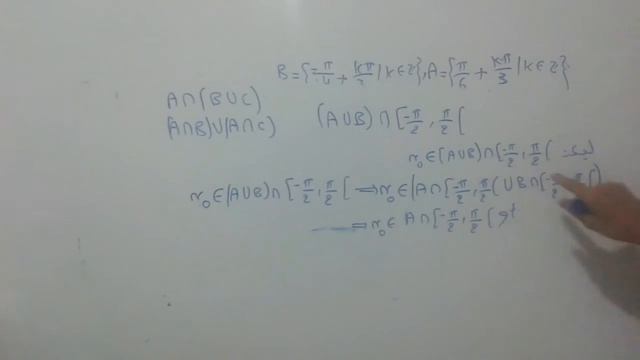 B={-π/4 + kπ/2 | k∈Z}, A={π/6 + kπ/3 | k∈Z}
A∩(B∪C)
(A∩B)∪(A∩C)
(A∪B)∩[-π/2, π/2[
x₀∈(A∪B)∩[-π/2, π/2[ ليكن
x₀∈(A∪B)∩[-π/2, π/2[ ⟹ x₀∈(A∩[-π/2, π/2[ ∪ B∩[-π/2, π/2[)
⟹ x₀∈ A∩[-π/2, π/2[ أو